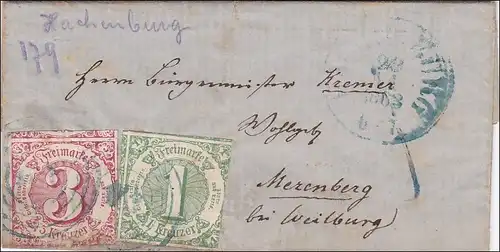 Hachenburg
179
Herrn Bürgermeister Kremer
Wohlgeb
Merenberg
bei Weilburg
Freimarke
3
3 Kreuzer
Freimarke
1
1 Kreuzer